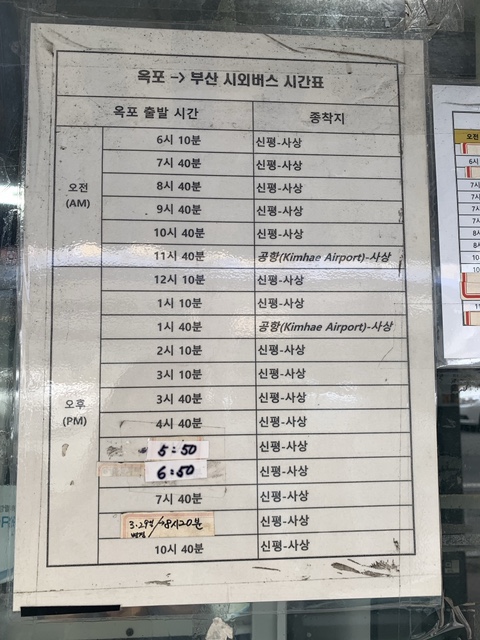 옥포 -> 부산 시외버스 시간표
옥포 출발 시간 종착지
오전
(AM)
6시 10분 신평-사상
7시 40분 신평-사상
8시 40분 신평-사상
9시 40분 신평-사상
10시 40분 신평-사상
11시 40분 공항(Kimhae Airport)-사상
오후
(PM)
12시 10분 신평-사상
1시 10분 신평-사상
1시 40분 공항(Kimhae Airport)-사상
2시 10분 신평-사상
3시 10분 신평-사상
3시 40분 신평-사상
4시 40분 신평-사상
5:50 신평-사상
6:50 신평-사상
7시 40분 신평-사상
8시20분 신평-사상
10시 40분 신평-사상
오전